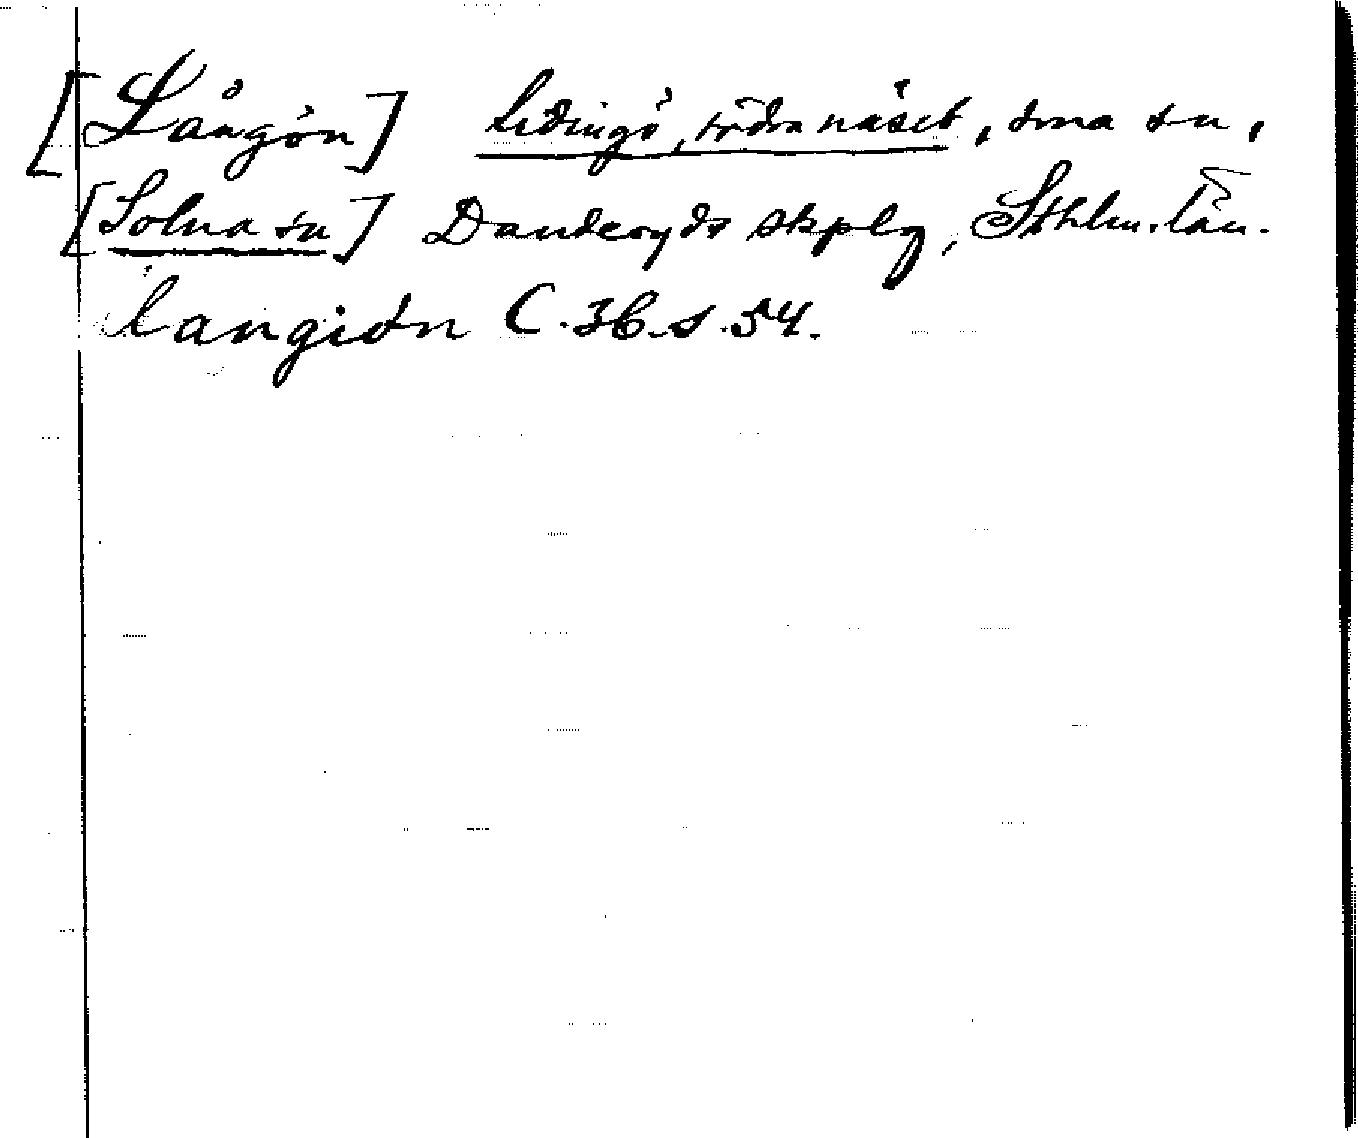 [Långön] Lidingö, södra näset, sma sn,
[Solna sn] Danderyds skplg, Sthlm. län.
langiön C.36.s.54.